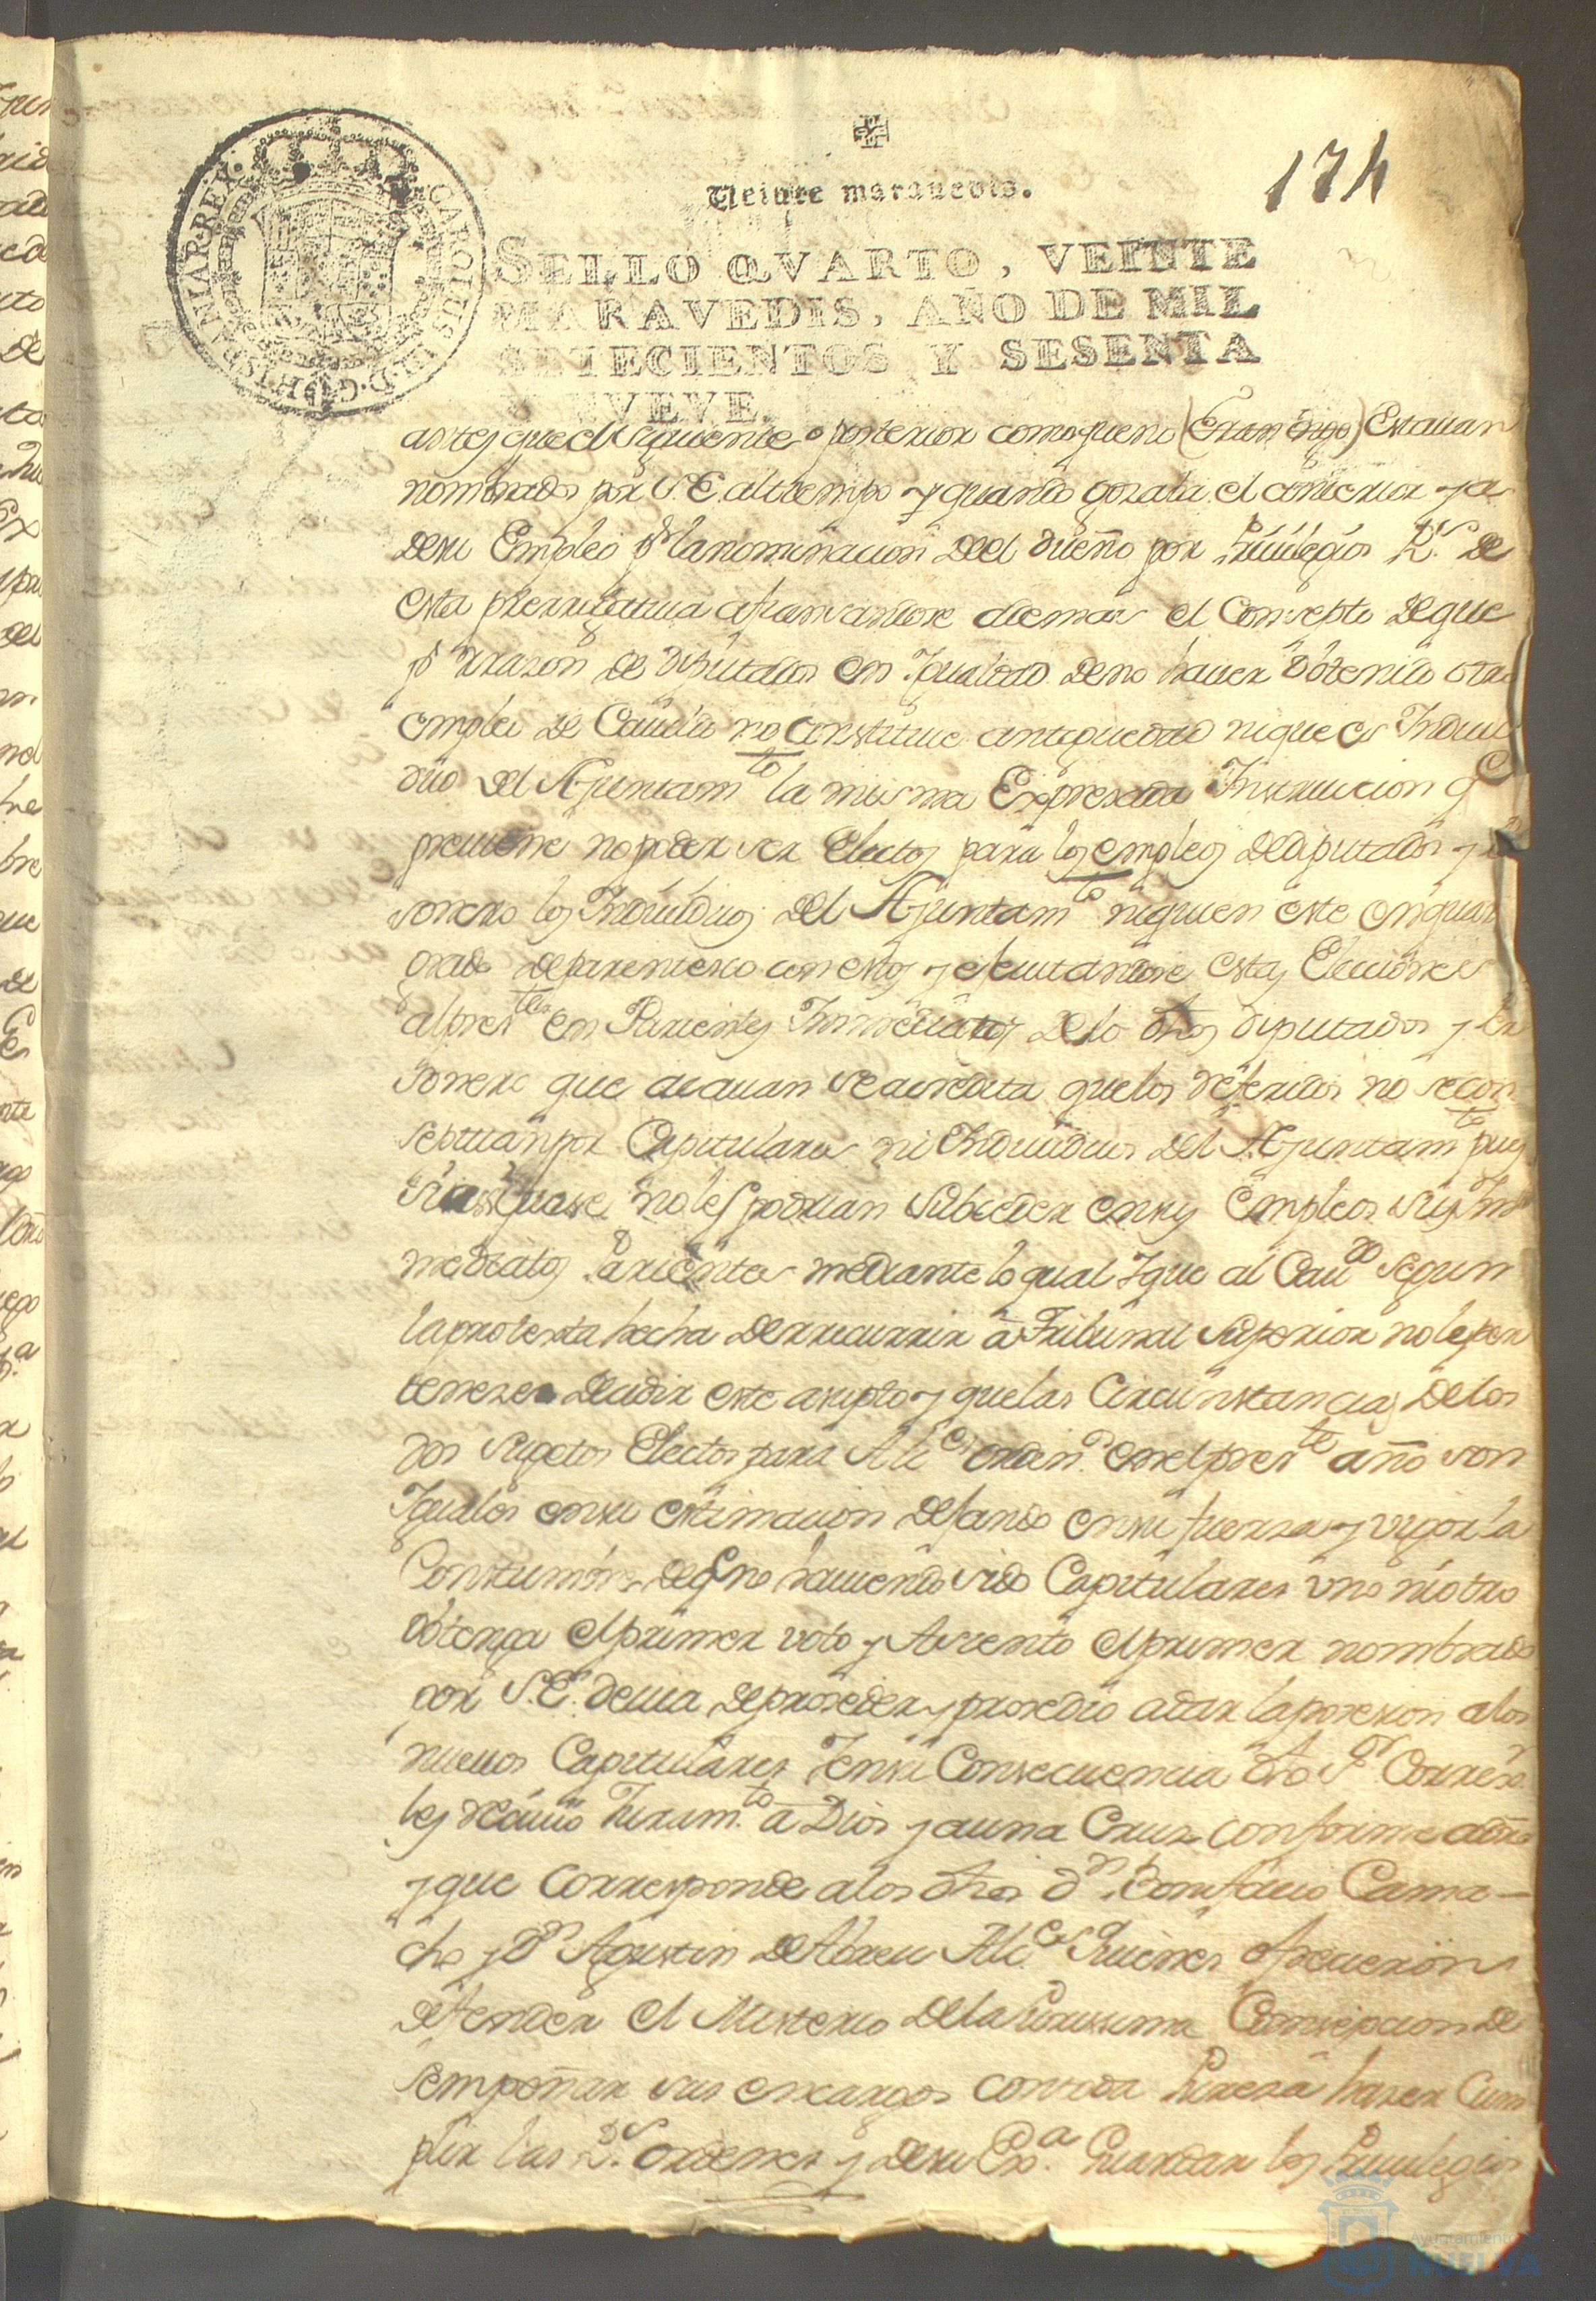 174
Veinte maravedis.
CAROLUS III D.G. HISPANIAR. REX.
SELLO QVARTO, VEINTE
MARAVEDIS, AÑO DE MIL
SETECIENTOS Y SESENTA
Y NVEVE.
antes que el siguiente o posterior como que no Estauan
nombrados por S.E. al tiempo y quando gozaba el anterior ya
de su Empleo pr la nominacion del dueño por Priuilegios Rs de
esta prerrogatiua afiansandose ademas el Consepto de que
pr razon de Diputados en Igualdad de no hauer obtenido otro
empleo de Cauildo no constitue antiguedad ni que es Indiui
duo del Ajuntamto la misma Expresada Instruccion qe
preuiene no poder ser Electos para los empleos de diputados y Per
sonero los Indiuiduos del Ajuntamto ni quien este en quarto
grado de parentesco con estos y executandose estas Elecciones
al presente en Parientes Inmediatos de los dhos diputados y Per
sonero que acauan se acredita que los referidos no se con
septuan por Capitulares ni Indiuiduos del Ajuntamto pues
no les podrian subceder en sus Empleos sus In
mediatos Parientes mediante lo qual Y que al Caudo segun
la protesta hecha de recurrir a Tribunal Superior no le per
teneze decidir este asupto y que las Circunstancias de los
dos sugetos Electos para Alces ordins en el preste año son
Iguales en su estimacion defando en su fuerza y vigor la
Constumbre de q no hauiendo sido Capitulares vno ni otro
obtenga el primer voto y Asiento el primer nombrado
por S.E. deuia de proseder y prosedio a dar la posesion a los
nueuos Capitulares Y en su Consecuencia dho Sr Correxor
les reciuio Juramto a Dios y a una Cruz conforme a dro
y que corresponde a los dhos Dn Bonifacio Cama-
cho y Dn Agustin de Abreu Alces Quienes ofrecieron
defender el Misterio de la Purissima Consepcion de
sempeñar sus encargos con toda Pureza haser Cum
plir las Rs ordenes y de su Exa Guardar los Priuilegios
Ayuntamiento
HUELVA